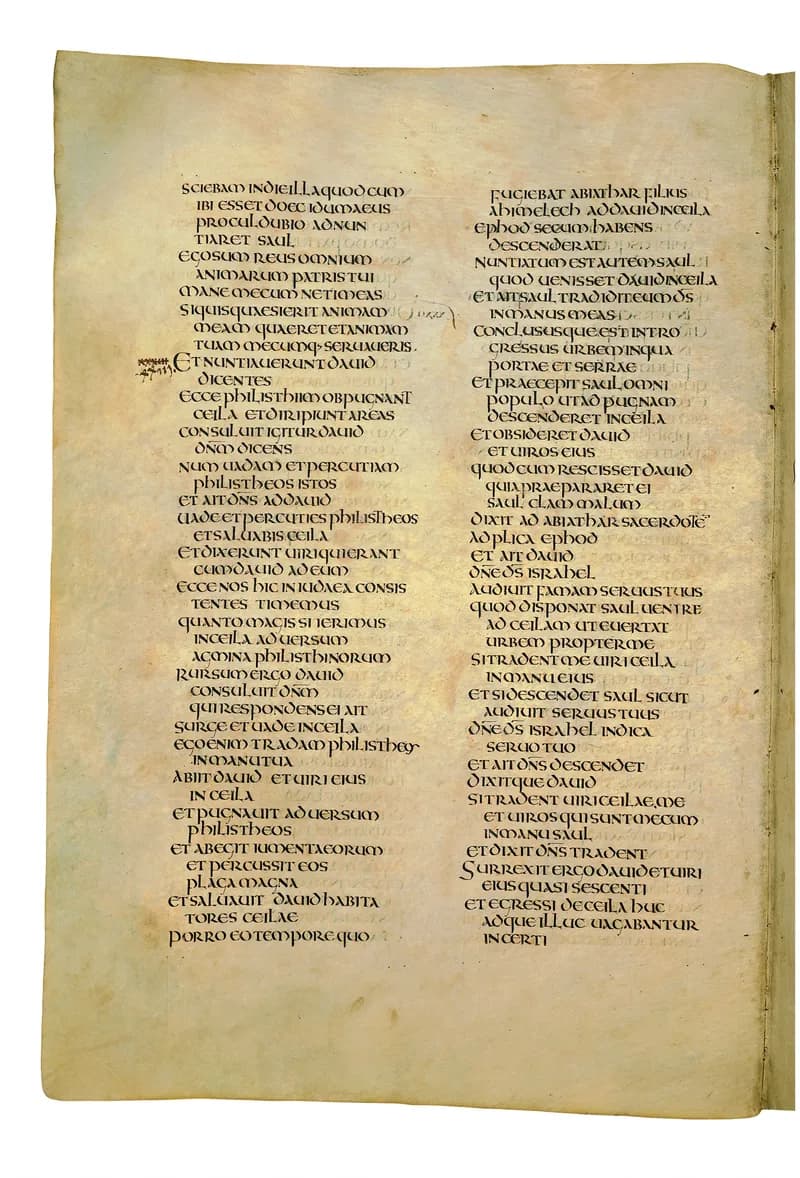 SCIEBAM IN DIE ILLA QUOD CUM
IBI ESSET DOEC IDUMAEUS
PROCULDUBIO ADNUN
TIARET SAUL
EGO SUM REUS OMNIUM
ANIMARUM PATRIS TUI
MANE MECUM NE TIMEAS
SI QUIS QUAESIERIT ANIMAM
MEAM QUAERET ET ANIMAM
TUAM MECUMQ· SERUAUERIS
ET NUNTIAUERUNT DAUID
DICENTES
ECCE PHILISTHIIM OBPUGNANT
CEILA ET DIRIPIUNT AREAS
CONSULUIT IGITUR DAUID
DN̄M DICENS
NUM UADAM ET PERCUTIAM
PHILISTHEOS ISTOS
ET AIT DN̄S AD DAUID
UADE ET PERCUTIES PHILISTHEOS
ET SALUABIS CEILA
ET DIXERUNT UIRI QUI ERANT
CUM DAUID AD EUM
ECCE NOS HIC IN IUDAEA CONSIS
TENTES TIMEMUS
QUANTO MAGIS SI IERIMUS
IN CEILA ADUERSUM
AGMINA PHILISTHINORUM
RURSUM ERGO DAUID
CONSULUIT DN̄M
QUI RESPONDENS EI AIT
SURGE ET UADE IN CEILA
EGO ENIM TRADAM PHILISTHEOS
IN MANU TUA
ABIIT DAUID ET UIRI EIUS
IN CEILA
ET PUGNAUIT ADUERSUM
PHILISTHEOS
ET ABEGIT IUMENTA EORUM
ET PERCUSSIT EOS
PLAGA MAGNA
ET SALUAUIT DAUID HABITA
TORES CEILAE
PORRO EO TEMPORE QUO
FUGIEBAT ABIATHAR FILIUS
AHIMELECH AD DAUID IN CEILA
EPHOD SECUM HABENS
DESCENDERAT
NUNTIATUM EST AUTEM SAUL
QUOD UENISSET DAUID IN CEILA
ET AIT SAUL TRADIDIT EUM DS̄
IN MANUS MEAS
CONCLUSUSQUE EST INTRO
GRESSUS URBEM IN QUA
PORTAE ET SERRAE
ET PRAECEPIT SAUL OMNI
POPULO UT AD PUGNAM
DESCENDERET IN CEILA
ET OBSIDERET DAUID
ET UIROS EIUS
QUOD CUM RESCISSET DAUID
QUIA PRAEPARARET EI
SAUL CLAM MALUM
DIXIT AD ABIATHAR SACERDOTĒ
ADPLICA EPHOD
ET AIT DAUID
DN̄E DS̄ ISRAHEL
AUDIUIT FAMAM SERUUS TUUS
QUOD DISPONAT SAUL UENIRE
AD CEILAM UT EUERTAT
URBEM PROPTER ME
SI TRADENT ME UIRI CEILA
IN MANU EIUS
ET SI DESCENDET SAUL SICUT
AUDIUIT SERUUS TUUS
DN̄E DS̄ ISRAHEL INDICA
SERUO TUO
ET AIT DN̄S DESCENDET
DIXITQUE DAUID
SI TRADENT UIRI CEILAE ME
ET UIROS QUI SUNT MECUM
IN MANU SAUL
ET DIXIT DN̄S TRADENT
SURREXIT ERGO DAUID ET UIRI
EIUS QUASI SESCENTI
ET EGRESSI DE CEILA HUC
ADQUE ILLUC UAGABANTUR
INCERTI